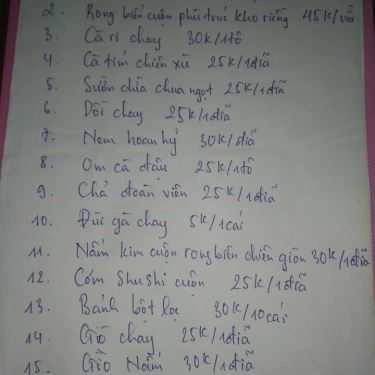 2. Rong biển cuộn phù trúc kho riềng 45k/vỉ
3. Cà ri chay 30k/1tô
4. Cà tím chiên xù 25k/1đĩa
5. Sườn dứa chua ngọt 25k/1đĩa
6. Dồi chay 25k/1đĩa
7. Nem hoan hỷ 30k/đĩa
8. Om cà đậu 25k/1tô
9. Chả đoàn viên 25k/1đĩa
10. Đùi gà chay 5k/1cái
11. Nấm kim cuộn rong biển chiên giòn 30k/1đĩa
12. Cơm Shushi cuộn 25k/1đĩa
13. Bánh bột lọc 30k/10cái
14. Giò chay 25k/1đĩa
15. Giò Nấm 30k/1đĩa